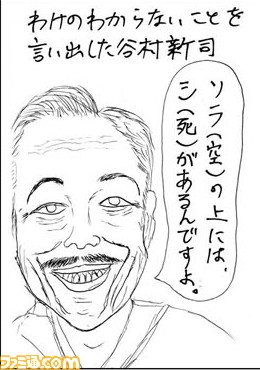 わけのわからないことを
言い出した谷村新司
ソラ(空)の上には、
シ(死)があるんですよ。
ファミ通.com